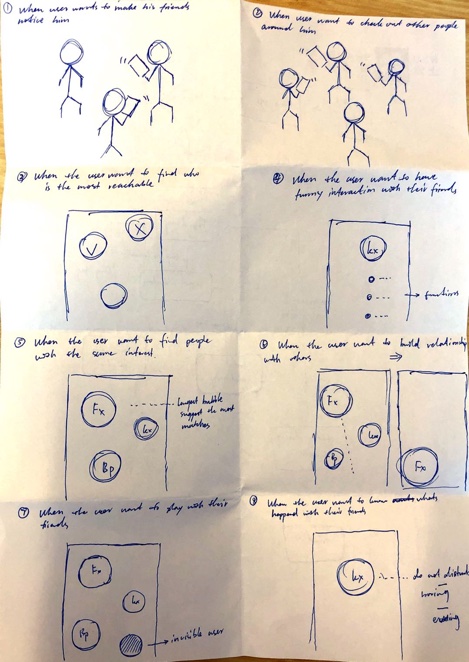 ① When user wants to make his friends
notice him
② When user want to check out other people
around him
③ When the user want to find who
is the most reachable
V
X
④ When the user want to have
funny interaction with their friends
kx
functions
⑤ When the user want to find people
with the same interest.
Fx
kx
Bp
largest bubble
suggest the most
matches
⑥ When the user want to build relationship
with others
Fx
kx
Bp
Fx
⑦ When the user want to play with their
friends
Fx
kx
Bp
invisible user
⑧ When the user want to know whats
happend with their friends
kx
do not disturb
boring
exciting